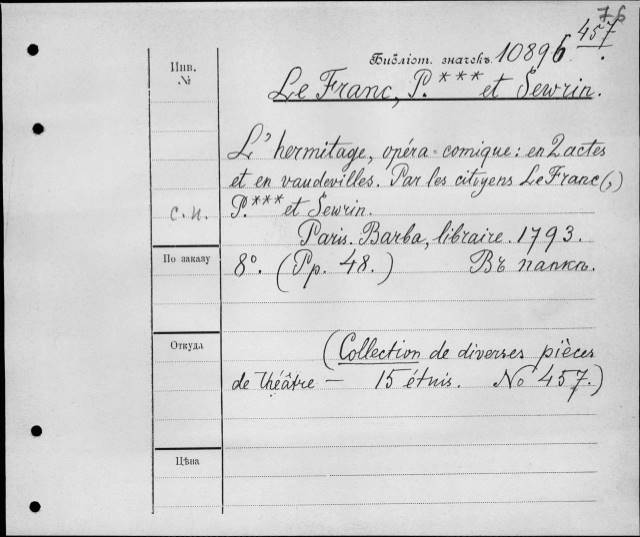 76
457
Библіот. значекъ 10896
Инв.
№
Le Franc, P.*** et Sewrin.
L'hermitage, opéra-comique: en 2 actes
et en vaudevilles. Par les citoyens Le Franc(,)
с.п. P.*** et Sewrin.
Paris. Barba, libraire. 1793.
По заказу
8°. (Pp. 48.) Въ папкѣ.
Откуда
(Collection de diverses pièces
de théâtre — 15 étuis. No 457.)
Цѣна